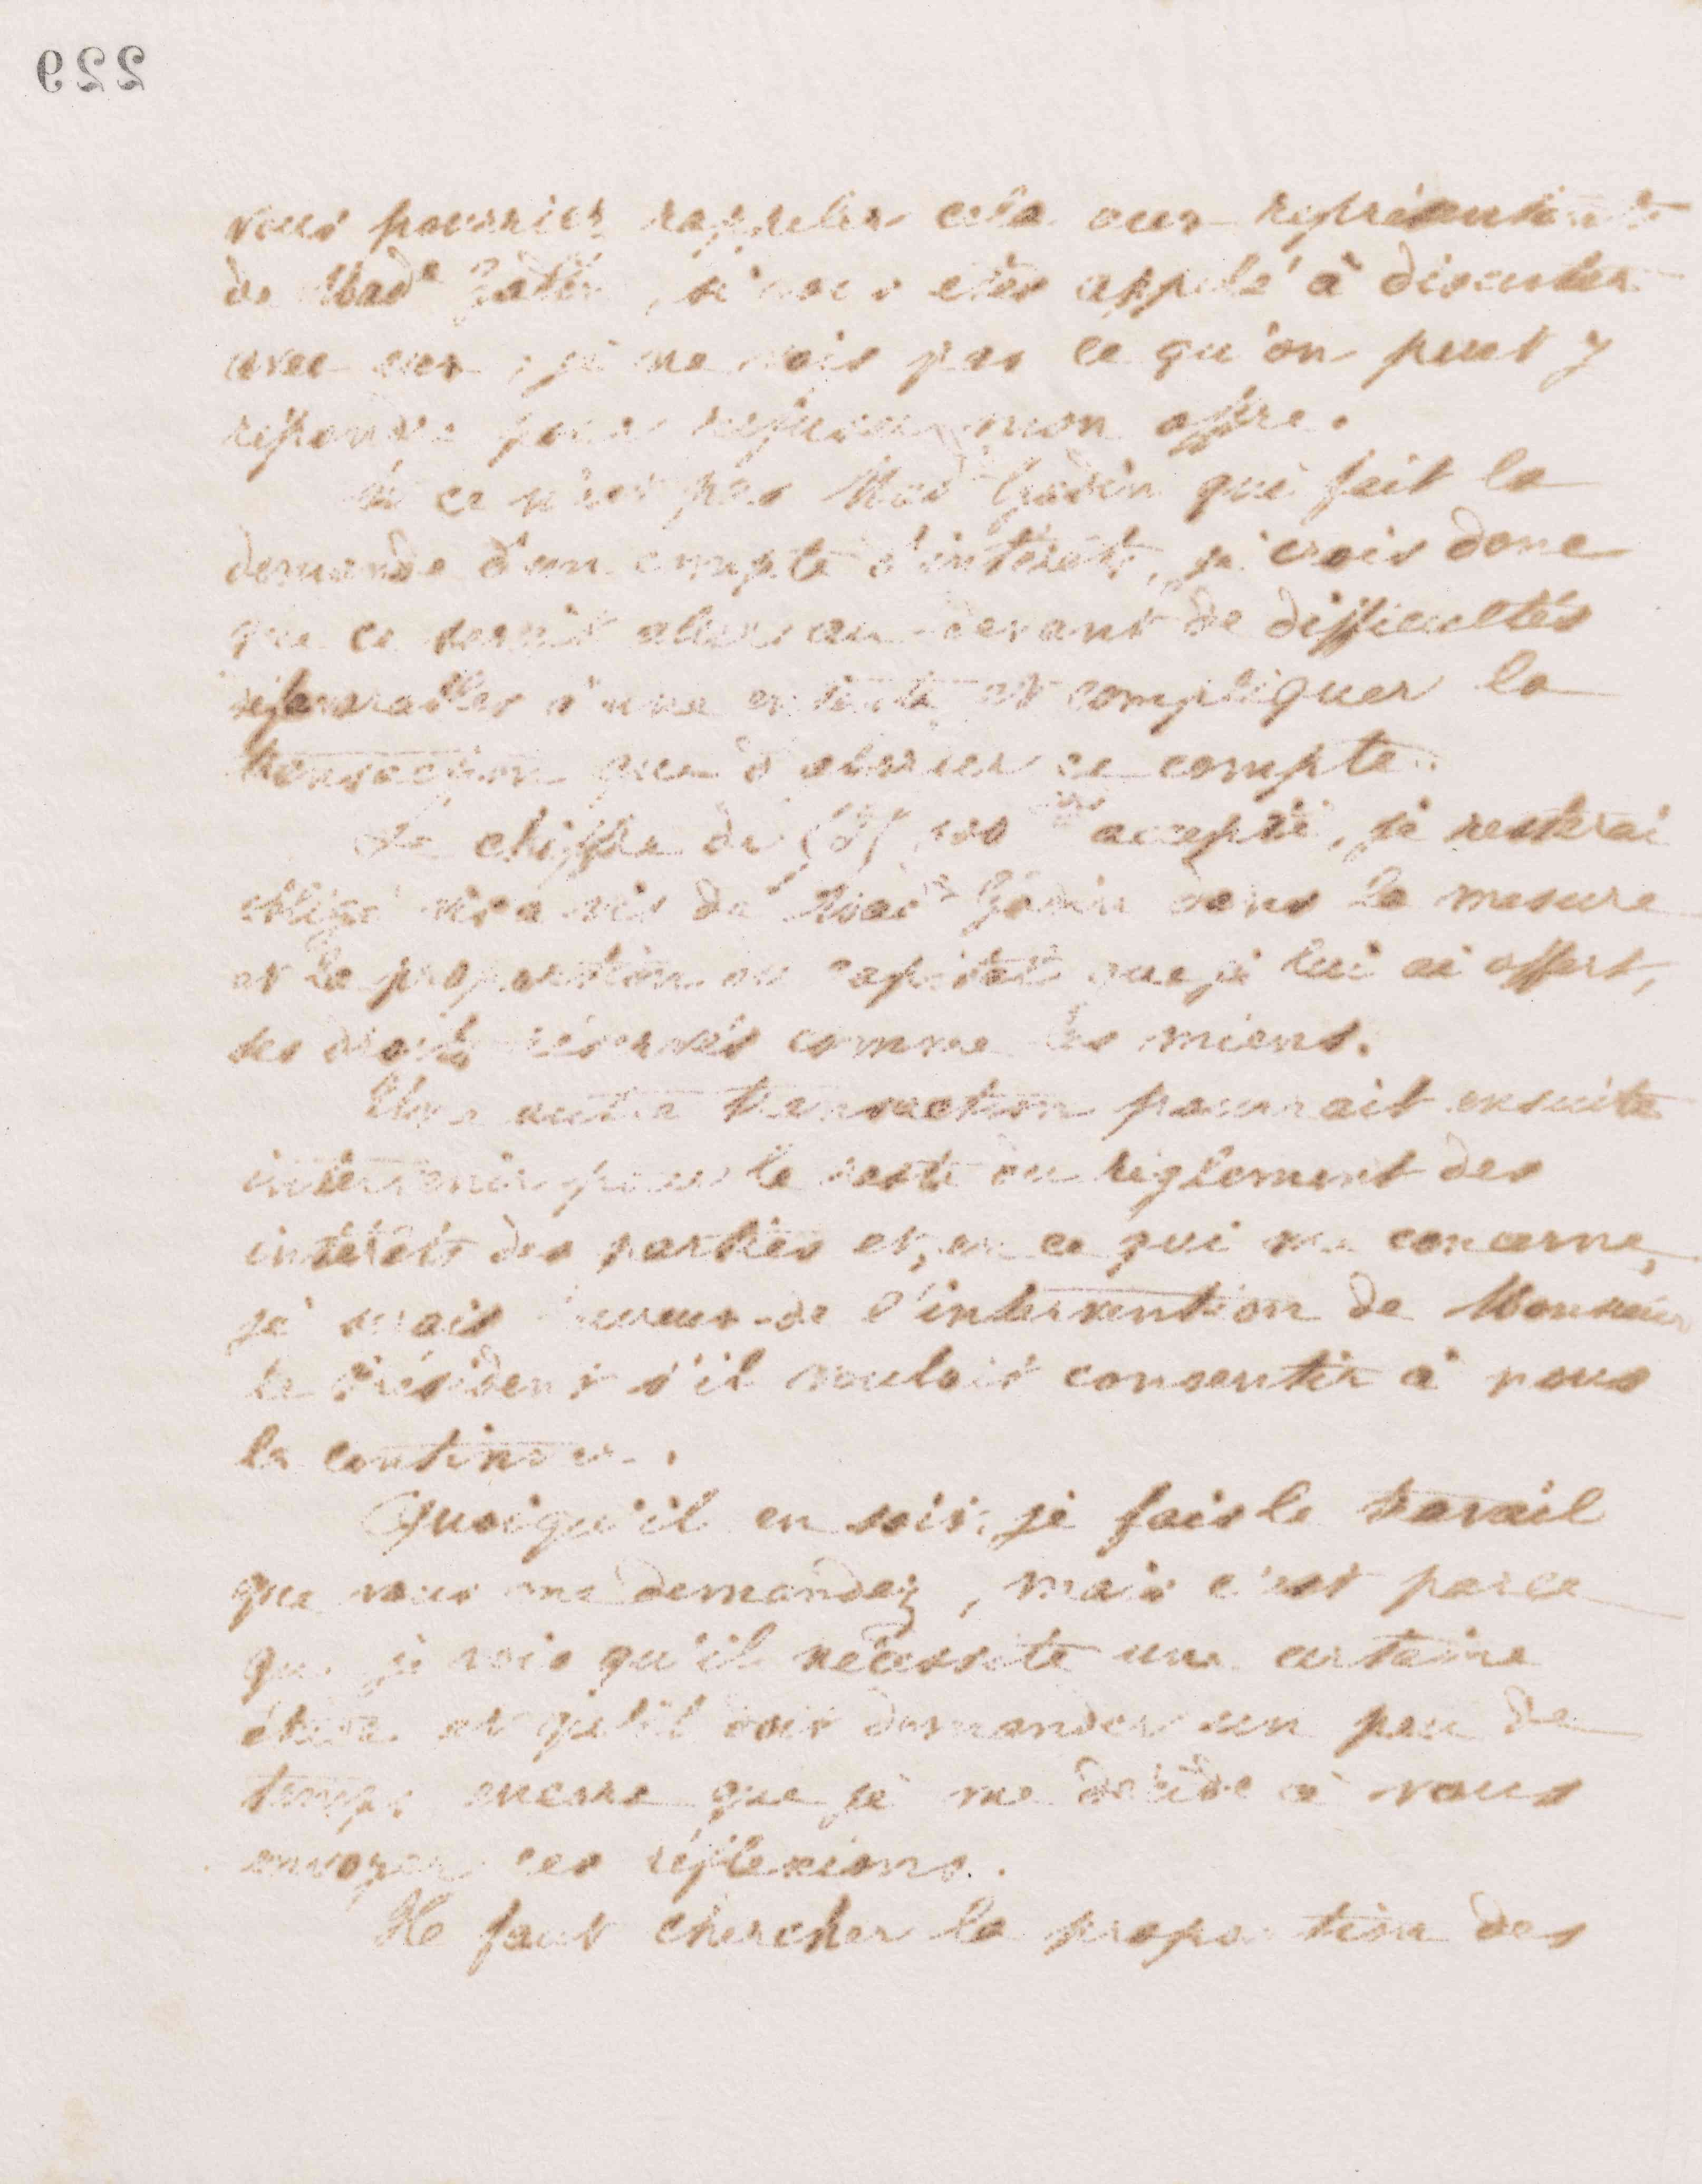 229
vous pourriez rappeler cela aux représentants
de Madᵉ Godin, si vous êtes appelé à discuter
avec eux ; je ne vois pas ce qu'on peut y
répondre pour refuser mon offre.
Si ce n'est pas Madᵉ Godin qui fait la
demande d'un compte d'intérêts, je crois donc
que ce serait aller au devant de difficultés
d'une entente et compliquer la
transaction que d'établir ce compte.
Le chiffre de accepté, je resterai
obligé vis à vis de Madᵉ Godin dans la mesure
et la proportion du capital que je lui ai offert,
ses droits réservés comme les miens.
Une autre transaction pourrait ensuite
intervenir pour le reste du règlement des
intérêts des parties et, en ce qui me concerne,
je serais heureux de l'intervention de Monsieur
le Président s'il voulait consentir à nous
la continuer.
Quoiqu'il en soit, je fais le travail
que vous me demandez, mais c'est parce
que je vois qu'il nécessite une certaine
étude et qu'il doit demander un peu de
temps encore que je me décide à vous
envoyer ces réflexions.
Il faut chercher la proportion des